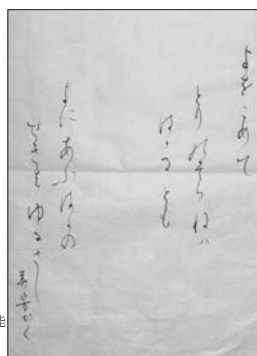 よをこめて
とりのそらねハ
はかるとも
よにあふさかの
せきはゆるさし
かく